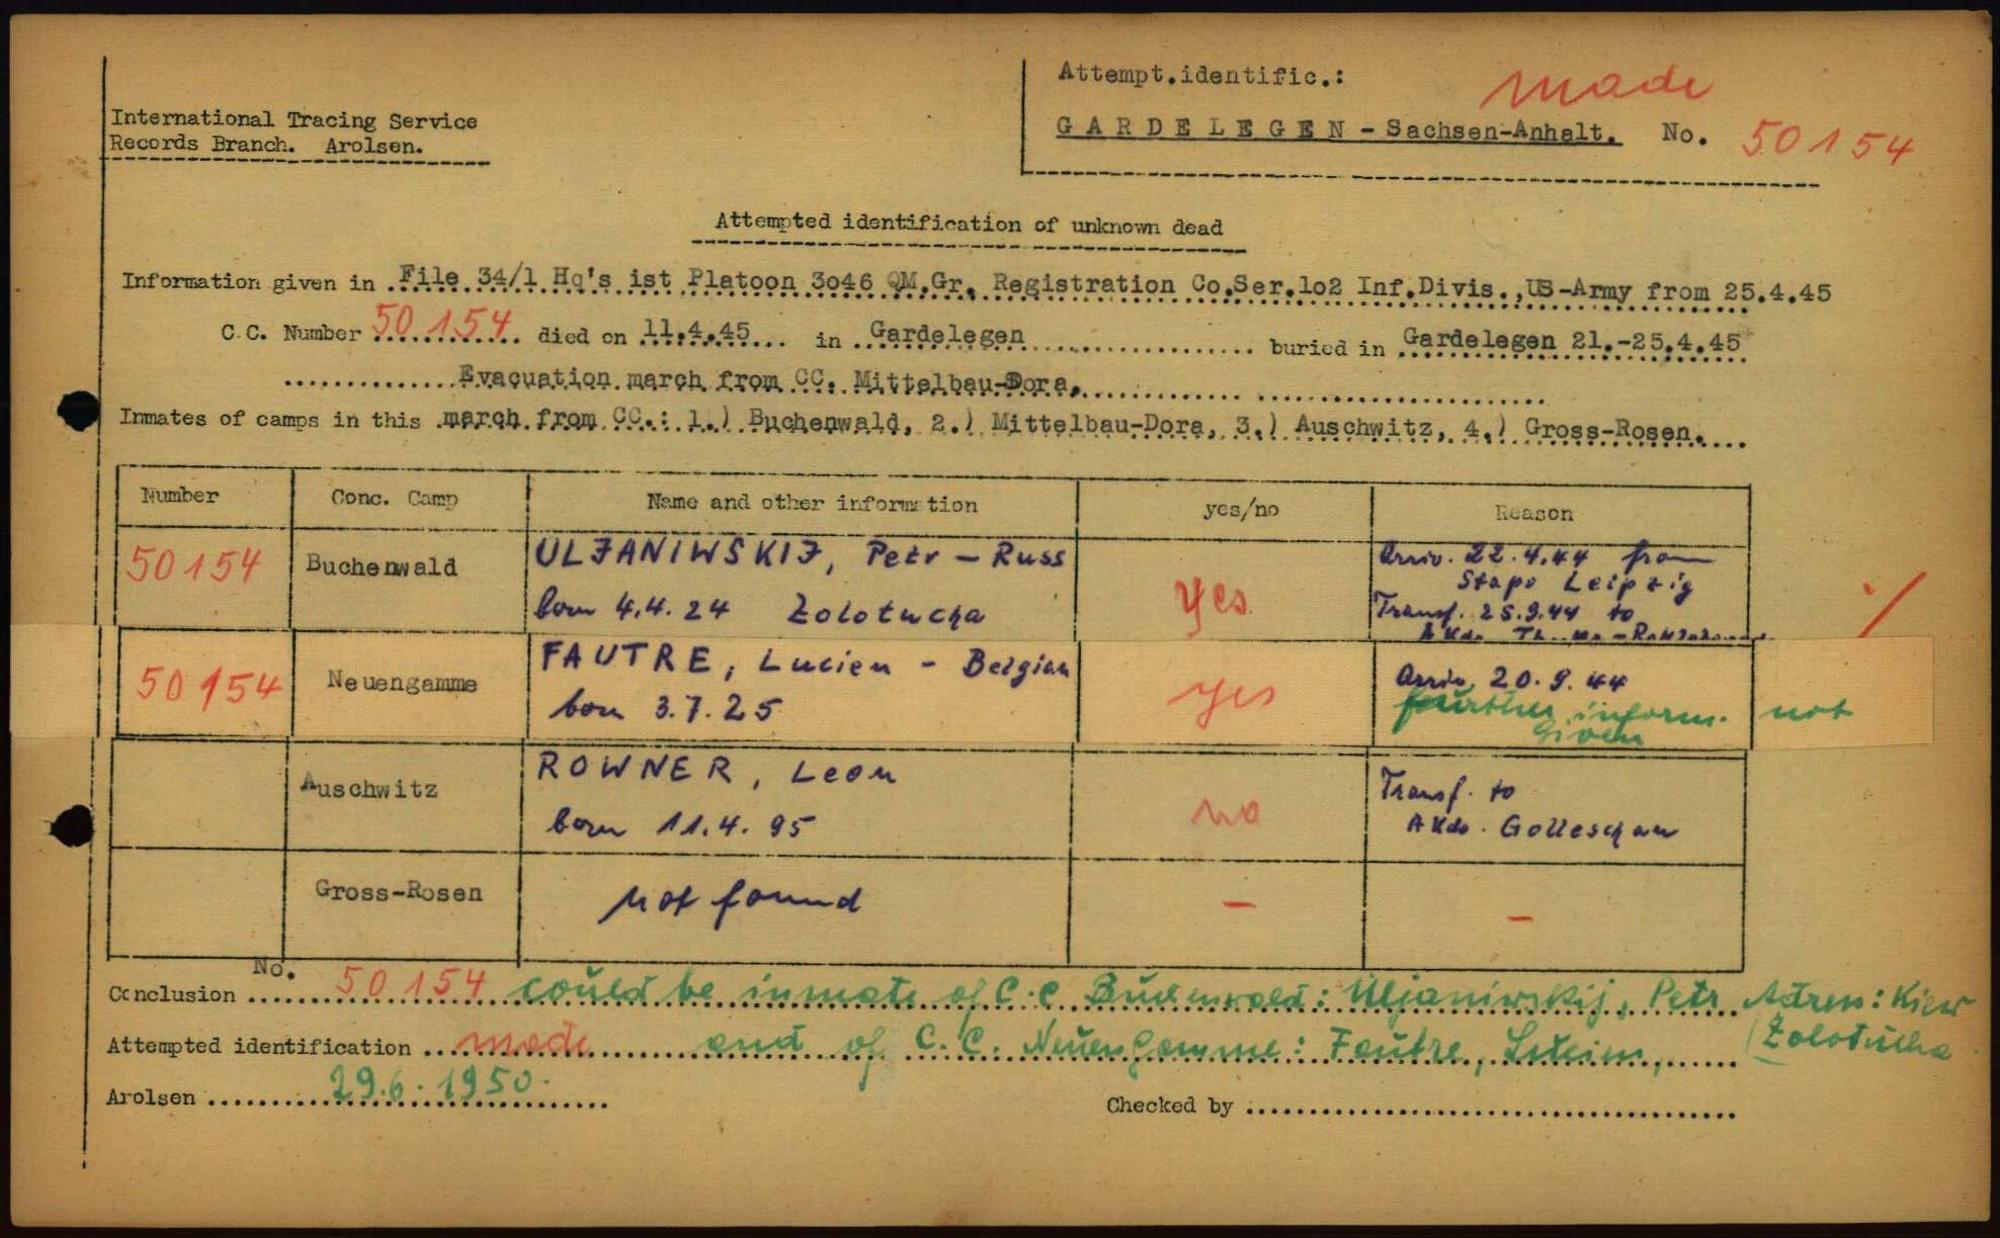 Attempt.identific.: made
International Tracing Service
Records Branch. Arolsen.
GARDELEGEN - Sachsen-Anhalt. No. 50154
Attempted identification of unknown dead
Information given in File 34/1 Hq's ist Platoon 3o46 QM.Gr. Registration Co.Ser.1o2 Inf.Divis.,US-Army from 25.4.45
C.C. Number 50154 died on 11.4.45 in Gardelegen buried in Gardelegen 21.-25.4.45
Evacuation march from CC. Mittelbau-Dora.
Inmates of camps in this march from CC.: 1.) Buchenwald, 2.) Mittelbau-Dora, 3.) Auschwitz, 4.) Gross-Rosen.
Number Conc. Camp Name and other information yes/no Reason
50154 Buchenwald ULJANIWSKIJ, Petr - Russ yes Arriv. 22.4.44 from
Stapo Leipzig
born 4.4.24 Zolotucha Transf. 25.9.44 to
A Kdo.
50154 Neuengamme FAUTRE, Lucien - Belgian yes Arriv. 20.9.44
born 3.7.25 further inform. not
given
Auschwitz ROWNER, Leon no Transf. to
born 11.4.95 A Kdo. Golleschau
Gross-Rosen not found - -
No.
Conclusion 50154 could be inmate of C.C. Buchenwald: Uljaniwskij, Petr Adress: Kiew
Attempted identification made and of C.C. Neuengamme: Fautre, Zolotucha
Arolsen 29.6.1950. Checked by